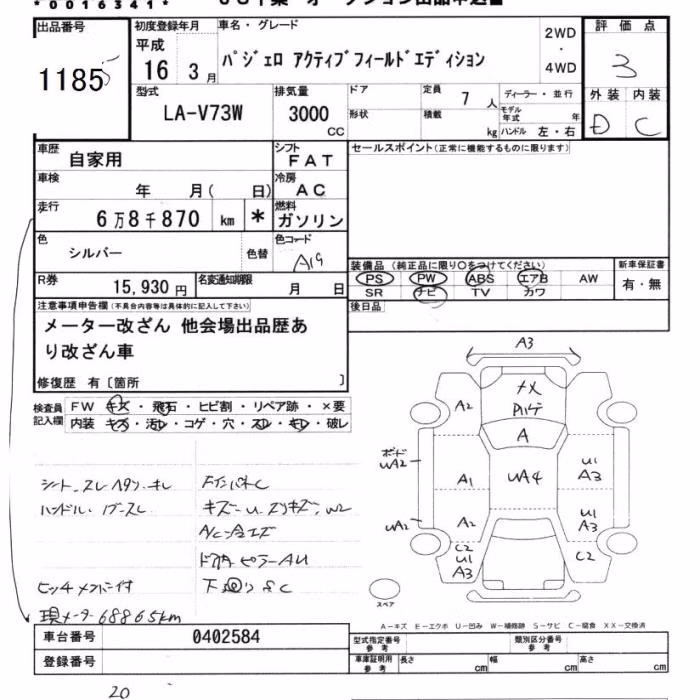 *0016341*
出品番号 初度登録年月 車名・グレード 2WD・4WD 評価点
1185 平成16 3月 パジェロ アクティブフィールドエディション 3
型式 排気量 ドア 定員 7人 ディーラー・並行 外装 内装
LA-V73W 3000CC 形状 積載 kg モデル年式 年 ハンドル 左・右 D C
車歴 自家用 シフト FAT セールスポイント(正常に機能するものに限ります)
車検 年 月( 日) 冷房 AC
走行 6万8千870 km * 燃料 ガソリン
色 シルバー 色替 色コード A19
装備品 (純正品に限り〇をつけてください) 新車保証書
PS PW ABS エアB AW 有・無
SR ナビ TV カワ
R券 15,930円 名変通知期限 月 日
後日品
注意事項申告欄(不具合内容等は具体的に記入して下さい)
メーター改ざん 他会場出品歴あ
り改ざん車
修復歴 有〔箇所 〕
検査員記入欄 FW キズ・飛石・ヒビ割・リペア跡・×要
内装 キズ・汚レ・コゲ・穴・スレ・キレ・破レ
シート、スレ ハタン・キレ
ハンドル・
キズ
A/C
ドア内 ピラーAU
下廻り SC
現メーター68865km
A3
A2
A
A1 UA4 U1 A3
ボード UA2
UA2 A2 U1 A3
C2 U1 A3 C2
スペア
A-キズ E-エクボ U-凹み W-補修跡 S-サビ C-腐食 XX-交換済
車台番号 0402584
登録番号
型式指定番号 参考 類別区分番号 参考
車庫証明用 参考 長さ cm 幅 cm 高さ cm
20